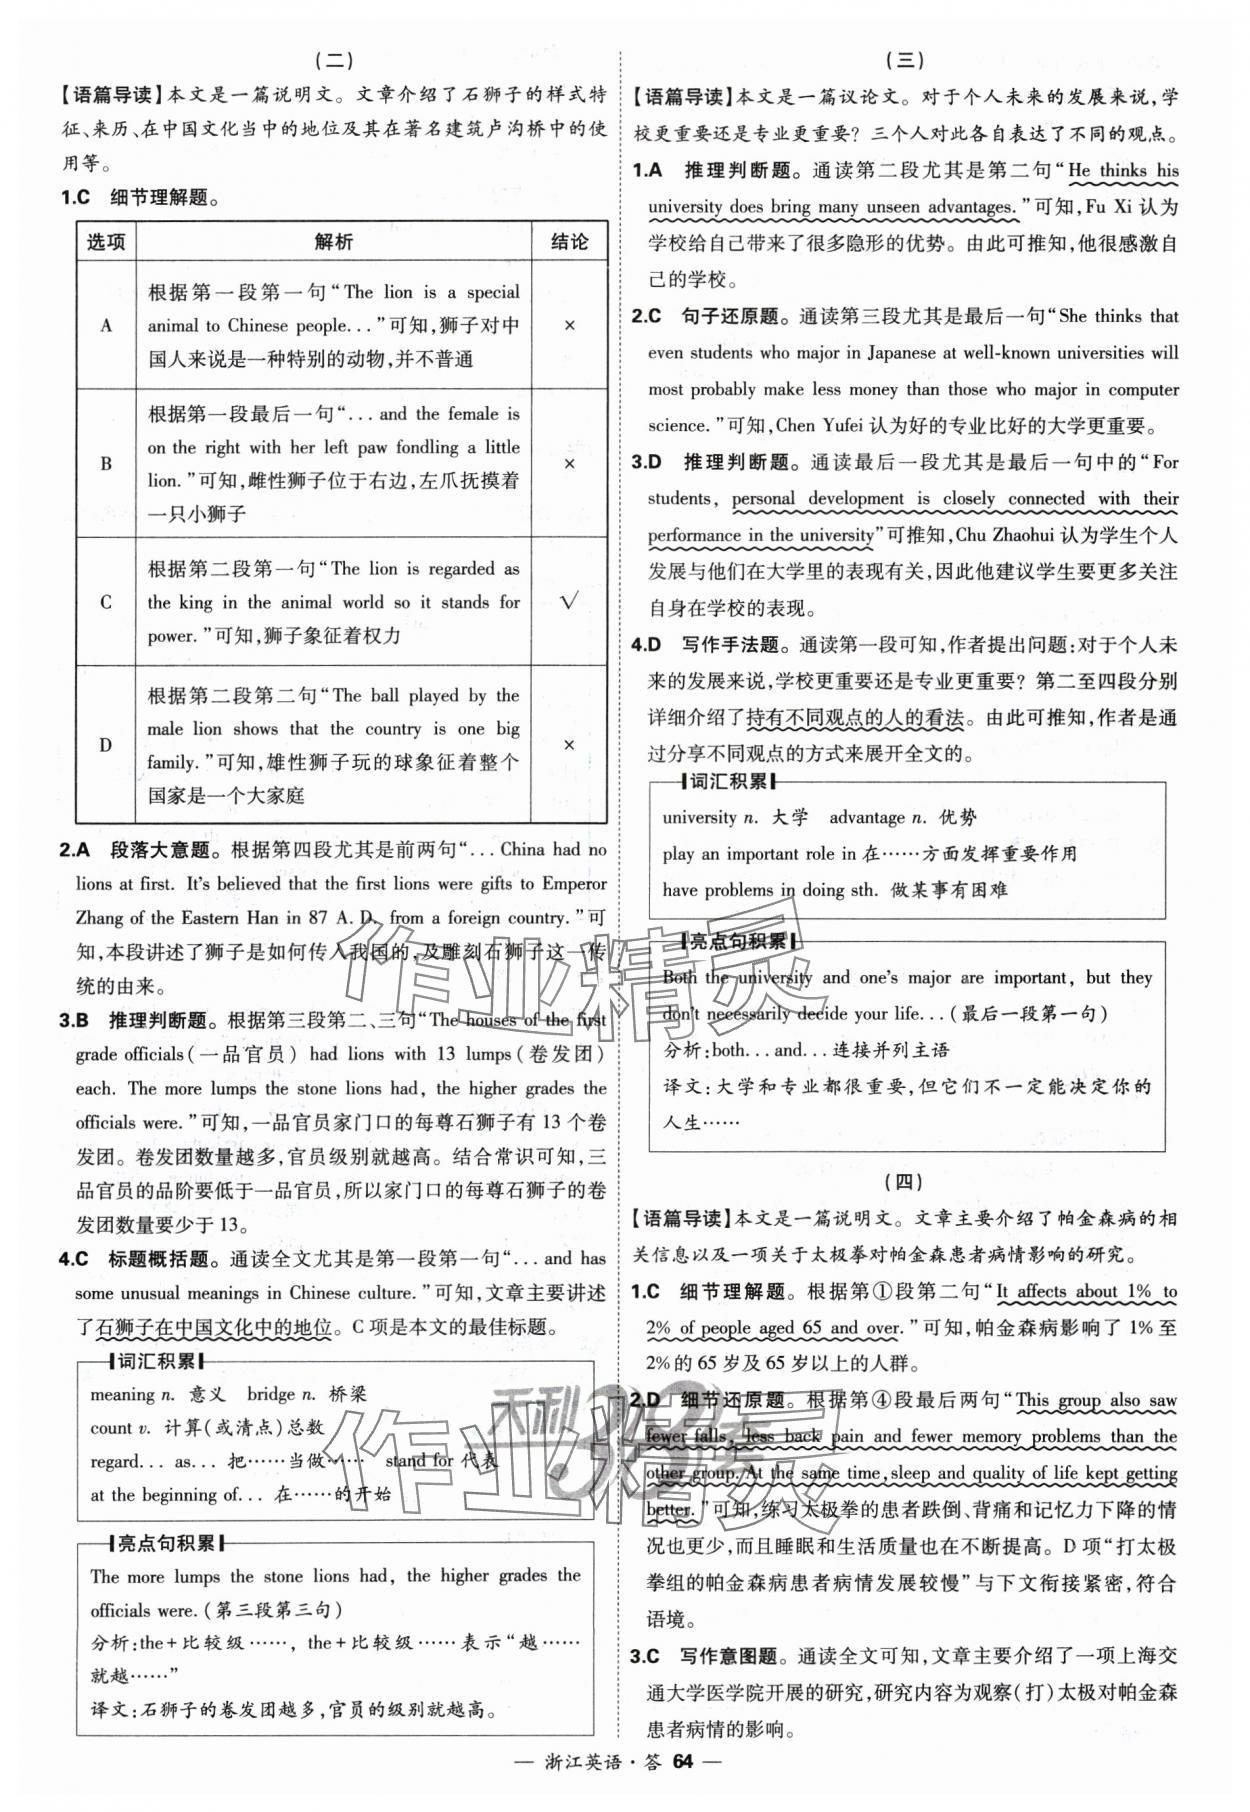 (二)
【语篇导读】本文是一篇说明文。文章介绍了石狮子的样式特
征、来历、在中国文化当中的地位及其在著名建筑卢沟桥中的使
用等。
1.C 细节理解题。
选项 解析 结论
A 根据第一段第一句“The lion is a special animal to Chinese people...”可知,狮子对中国人来说是一种特别的动物,并不普通 ×
B 根据第一段最后一句“... and the female is on the right with her left paw fondling a little lion.”可知,雌性狮子位于右边,左爪抚摸着一只小狮子 ×
C 根据第二段第一句“The lion is regarded as the king in the animal world so it stands for power.”可知,狮子象征着权力 √
D 根据第二段第二句“The ball played by the male lion shows that the country is one big family.”可知,雄性狮子玩的球象征着整个国家是一个大家庭 ×
2.A 段落大意题。根据第四段尤其是前两句“... China had no
lions at first. It's believed that the first lions were gifts to Emperor
Zhang of the Eastern Han in 87 A. D. from a foreign country.”可
知,本段讲述了狮子是如何传入我国的,及雕刻石狮子这一传
统的由来。
3.B 推理判断题。根据第三段第二、三句“The houses of the first
grade officials(一品官员) had lions with 13 lumps(卷发团)
each. The more lumps the stone lions had, the higher grades the
officials were.”可知,一品官员家门口的每尊石狮子有 13 个卷
发团。卷发团数量越多,官员级别就越高。结合常识可知,三
品官员的品阶要低于一品官员,所以家门口的每尊石狮子的卷
发团数量要少于 13。
4.C 标题概括题。通读全文尤其是第一段第一句“... and has
some unusual meanings in Chinese culture.”可知,文章主要讲述
了石狮子在中国文化中的地位。C 项是本文的最佳标题。
词汇积累
meaning n. 意义 bridge n. 桥梁
count v. 计算(或清点)总数
regard... as... 把……当做…… stand for 代表
at the beginning of... 在……的开始
亮点句积累
The more lumps the stone lions had, the higher grades the
officials were.(第三段第三句)
分析:the+比较级……, the+比较级……表示“越……
就越……”
译文:石狮子的卷发团越多,官员的级别就越高。
(三)
【语篇导读】本文是一篇议论文。对于个人未来的发展来说,学
校更重要还是专业更重要? 三个人对此各自表达了不同的观点。
1.A 推理判断题。通读第二段尤其是第二句“He thinks his
university does bring many unseen advantages.”可知,Fu Xi 认为
学校给自己带来了很多隐形的优势。由此可推知,他很感激自
己的学校。
2.C 句子还原题。通读第三段尤其是最后一句“She thinks that
even students who major in Japanese at well-known universities will
most probably make less money than those who major in computer
science.”可知,Chen Yufei 认为好的专业比好的大学更重要。
3.D 推理判断题。通读最后一段尤其是最后一句中的“For
students, personal development is closely connected with their
performance in the university”可推知,Chu Zhaohui 认为学生个人
发展与他们在大学里的表现有关,因此他建议学生要更多关注
自身在学校的表现。
4.D 写作手法题。通读第一段可知,作者提出问题:对于个人未
来的发展来说,学校更重要还是专业更重要? 第二至四段分别
详细介绍了持有不同观点的人的看法。由此可推知,作者是通
过分享不同观点的方式来展开全文的。
词汇积累
university n. 大学 advantage n. 优势
play an important role in 在……方面发挥重要作用
have problems in doing sth. 做某事有困难
亮点句积累
Both the university and one's major are important, but they
don't necessarily decide your life...(最后一段第一句)
分析:both... and... 连接并列主语
译文:大学和专业都很重要,但它们不一定能决定你的
人生……
(四)
【语篇导读】本文是一篇说明文。文章主要介绍了帕金森病的相
关信息以及一项关于太极拳对帕金森患者病情影响的研究。
1.C 细节理解题。根据第①段第二句“It affects about 1% to
2% of people aged 65 and over.”可知,帕金森病影响了 1%至
2%的 65 岁及 65 岁以上的人群。
2.D 细节还原题。根据第④段最后两句“This group also saw
fewer falls, less back pain and fewer memory problems than the
other group. At the same time,sleep and quality of life kept getting
better.”可知,练习太极拳的患者跌倒、背痛和记忆力下降的情
况也更少,而且睡眠和生活质量也在不断提高。D 项“打太极
拳组的帕金森病患者病情发展较慢”与下文衔接紧密,符合
语境。
3.C 写作意图题。通读全文可知,文章主要介绍了一项上海交
通大学医学院开展的研究,研究内容为观察(打)太极对帕金森
患者病情的影响。
作业精灵
天利38套
作业精灵
— 浙江英语·答 64 —